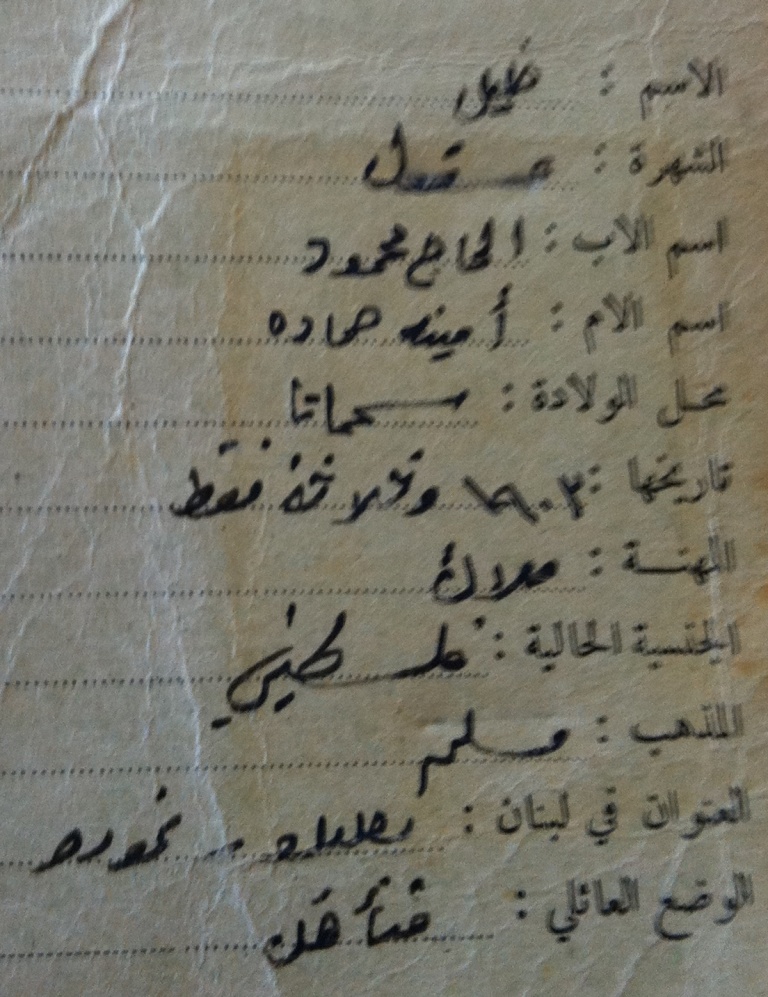 الاسم : خليل
الشهرة : قدول
اسم الاب : الحاج محمود
اسم الام : أمينه حماده
محل الولادة : سحماتا
تاريخها : ١٩٠٣ وثلاثة فقط
المهنة : ملاك
الجنسية الحالية : فلسطيني
المذهب : مسلم
العنوان في لبنان : بعلبك -
الوضع العائلي : متأهل